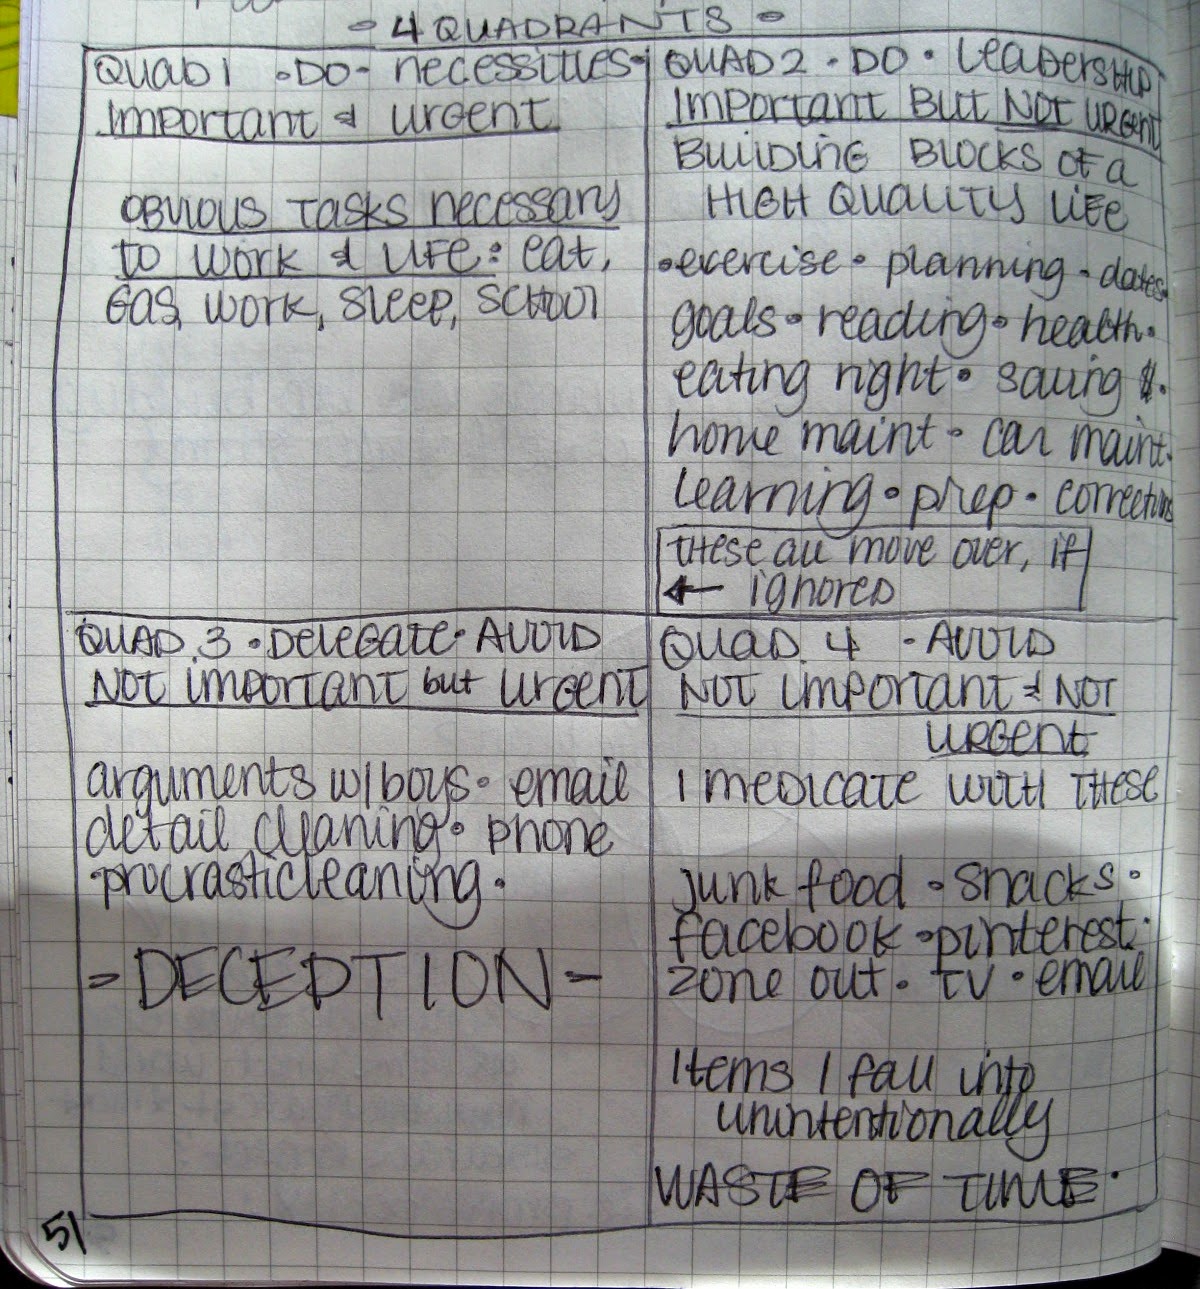 - 4 QUADRANTS -
QUAD 1 • DO - necessities •
Important & urgent
OBVIOUS TASKS necessary
to work & LIFE: eat,
Gas, work, sleep, school
QUAD 2 • DO • Leadership
Important But NOT URGent
BUILDING BLOCKS of a
HIGH QUALITY LIFE
• exercise • planning • dates •
goals • reading • health •
eating right • saving $ •
home maint • car maint •
Learning • prep • corrections
these all move over, if
← ignored
QUAD. 3 • Delegate • Avoid
NOT important but urgent
arguments w/boys • email
detail cleaning • phone
procrasticleaning •
- DECEPTION -
QUAD. 4 • Avoid
NOT Important & NOT
URGent
I medicate with these
junk food • snacks •
facebook • pinterest •
zone out • TV • email
Items I fall into
unintentionally
WASTE OF TIME •
51